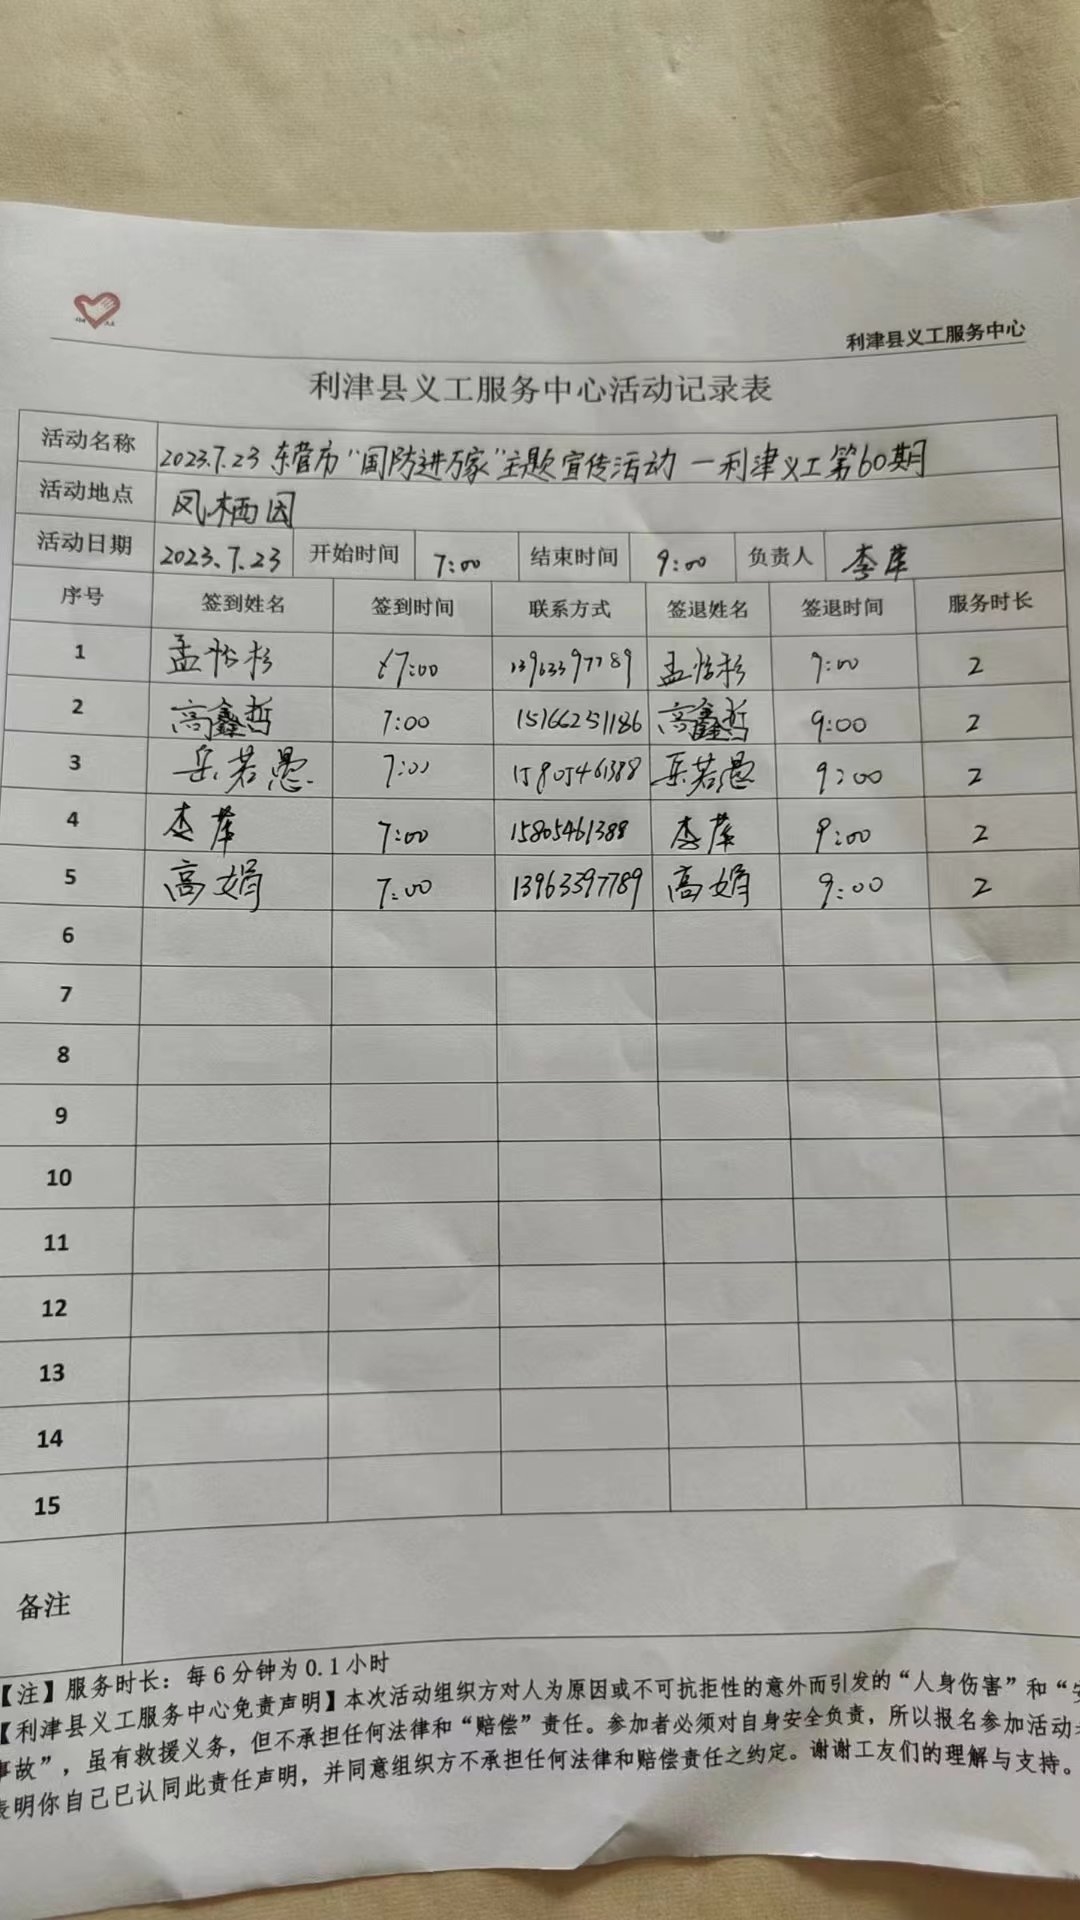 利津县义工服务中心
利津县义工服务中心活动记录表
活动名称 2023.7.23 东营市“国防进万家”主题宣传活动 一利津义工第60期
活动地点 凤栖园
活动日期 2023.7.23 开始时间 7:00 结束时间 9:00 负责人 李萍
序号 签到姓名 签到时间 联系方式 签退姓名 签退时间 服务时长
1 孟怡杉 7:00 13963397789 孟怡杉 9:00 2
2 高鑫哲 7:00 15166251186 高鑫哲 9:00 2
3 岳若愚 7:00 15805461388 岳若愚 9:00 2
4 李萍 7:00 15805461388 李萍 9:00 2
5 高娟 7:00 13963397789 高娟 9:00 2
6
7
8
9
10
11
12
13
14
15
备注
【注】服务时长：每6分钟为0.1小时
【利津县义工服务中心免责声明】本次活动组织方对人为原因或不可抗拒性的意外而引发的“人身伤害”和“安
事故”，虽有救援义务，但不承担任何法律和“赔偿”责任。参加者必须对自身安全负责，所以报名参加活动者
表明你自己已认同此责任声明，并同意组织方不承担任何法律和赔偿责任之约定。谢谢工友们的理解与支持。